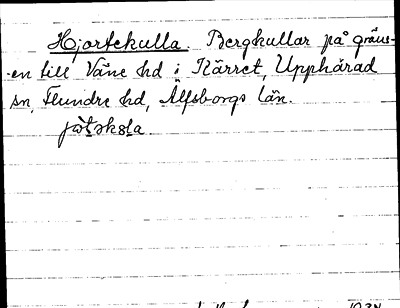 Hjortekulla. Bergkullar på gräns-
en till Väne hd i Kärret, Upphärad
sn, Flundre hd, Älfsborgs län.